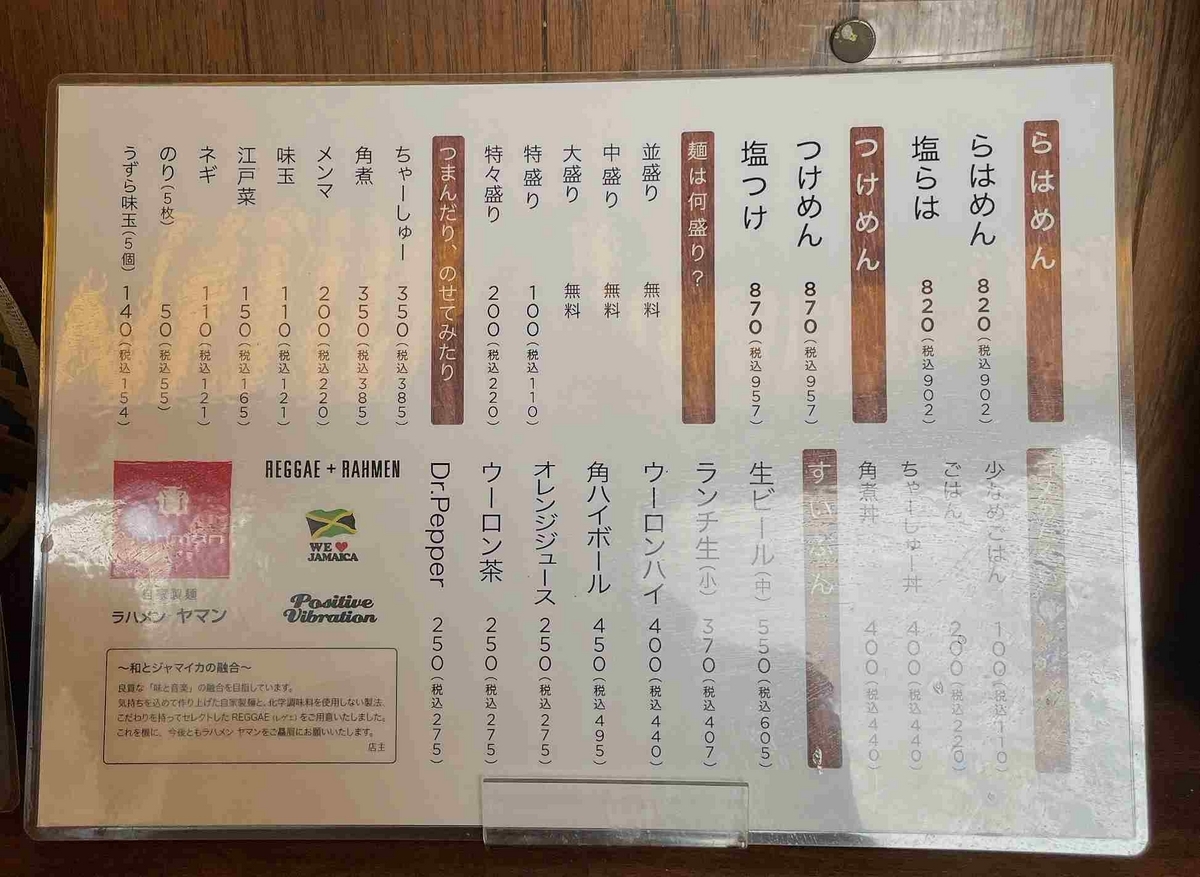 らはめん
らはめん 820(税込902)
塩らは 820(税込902)
つけめん
つけめん 870(税込957)
塩つけ 870(税込957)
麺は何盛り?
並盛り 無料
中盛り 無料
大盛り 無料
特盛り 100(税込110)
特々盛り 200(税込220)
つまんだり、のせてみたり
ちゃーしゅー 350(税込385)
角煮 350(税込385)
メンマ 200(税込220)
味玉 110(税込121)
江戸菜 150(税込165)
ネギ 110(税込121)
のり(5枚) 50(税込55)
うずら味玉(5個) 140(税込154)
少なめごはん 100(税込110)
ごはん 200(税込220)
ちゃーしゅー丼 400(税込440)
角煮丼 400(税込440)
すいぶん
生ビール(中) 550(税込605)
ランチ生(小) 370(税込407)
ウーロンハイ 400(税込440)
角ハイボール 450(税込495)
オレンジジュース 250(税込275)
ウーロン茶 250(税込275)
Dr.Pepper 250(税込275)
REGGAE + RAHMEN
WE ♥
JAMAICA
Positive
Vibration
自家製麺
ラハメン ヤマン
〜和とジャマイカの融合〜
良質な「味と音楽」の融合を目指しています。
気持ちを込めて作り上げた自家製麺と、化学調味料を使用しない製法、
こだわりを持ってセレクトした REGGAE(レゲエ)をご用意いたしました。
これを機に、今後ともラハメン ヤマンをご贔屓にお願いいたします。
店主